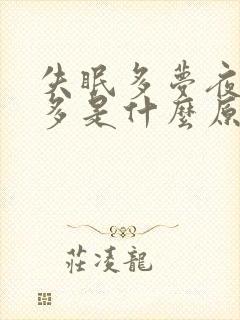 失眠多夢夜
多是什麼原
莊凌龍